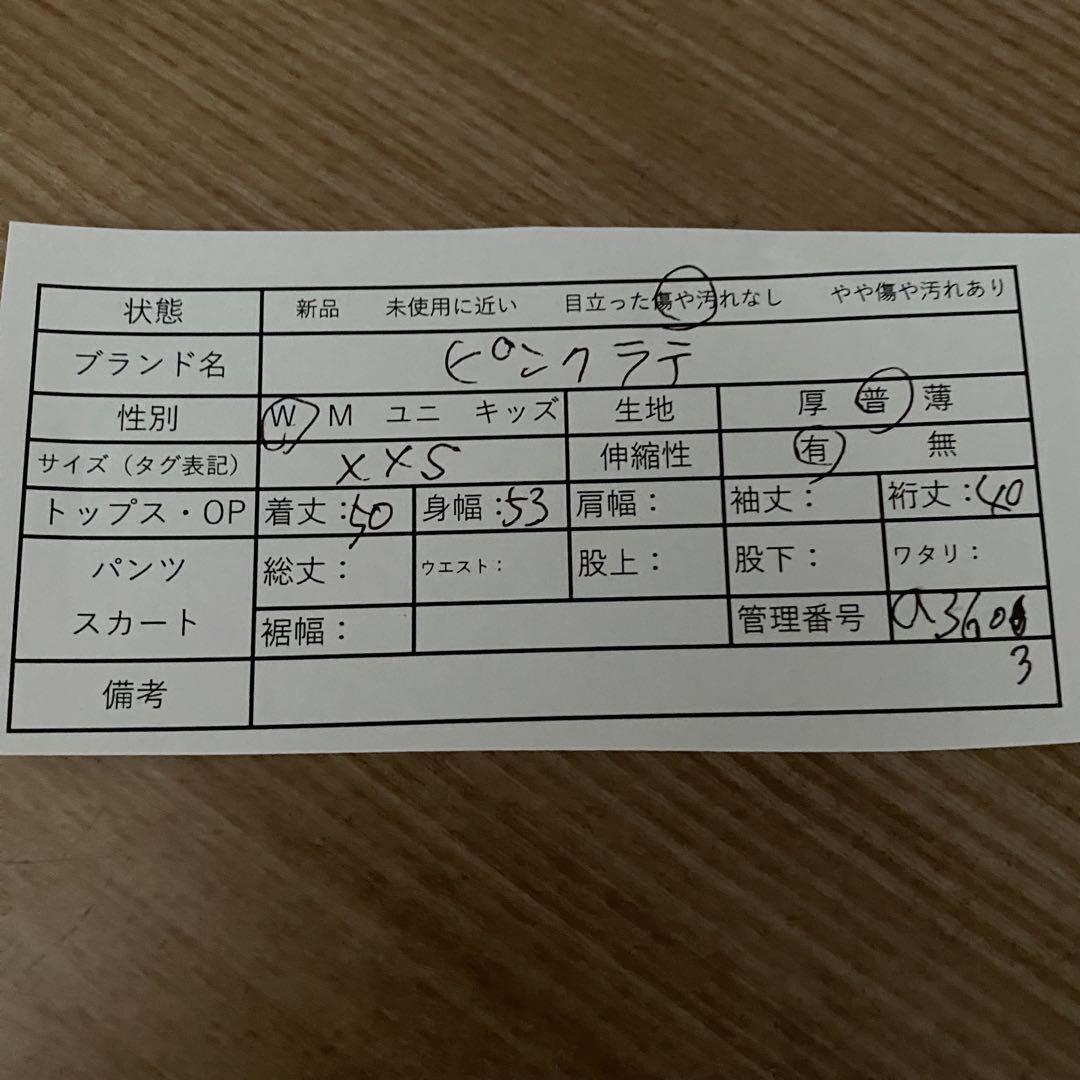 状態 新品 未使用に近い 目立った傷や汚れなし やや傷や汚れあり
ブランド名 ピンクラテ
性別 W M ユニ キッズ 生地 厚 普 薄
サイズ（タグ表記） XXS 伸縮性 有 無
トップス・OP 着丈：50 身幅：53 肩幅： 袖丈： 裄丈：40
パンツ 総丈： ウエスト： 股上： 股下： ワタリ：
スカート 裾幅： 管理番号 a360
3
備考